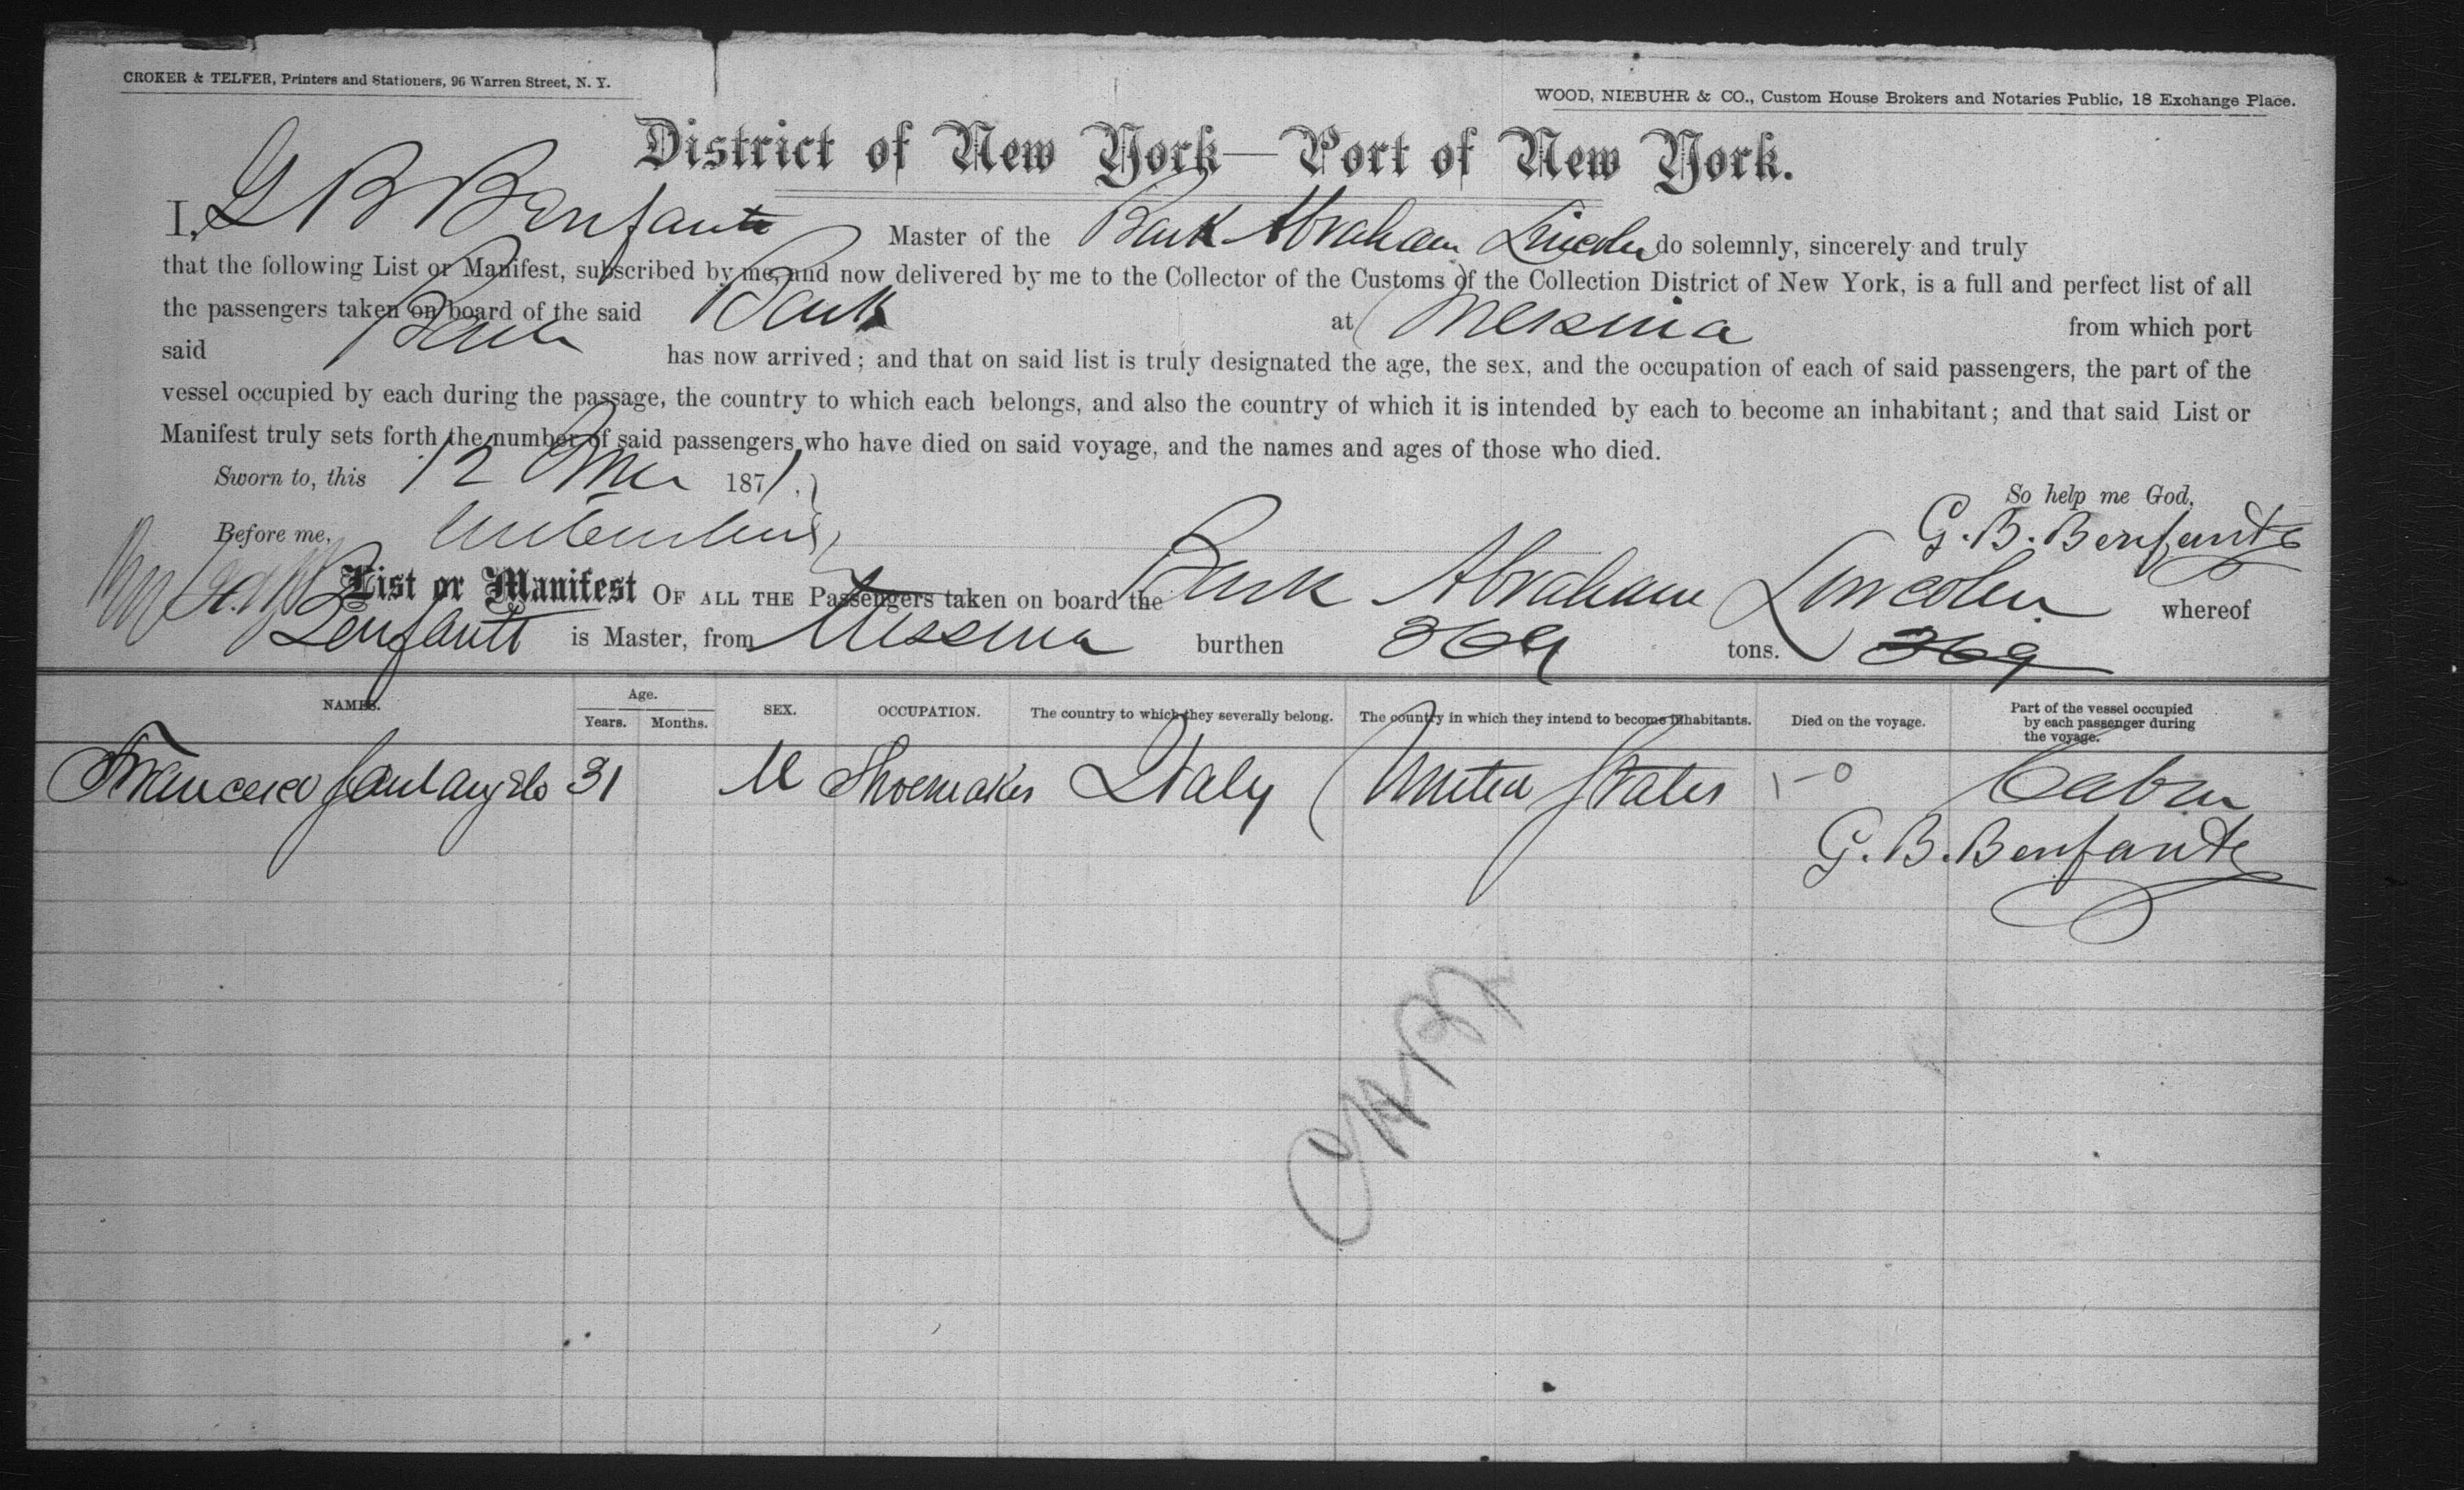 CROKER & TELFER, Printers and Stationers, 96 Warren Street, N. Y.
WOOD, NIEBUHR & CO., Custom House Brokers and Notaries Public, 18 Exchange Place.
District of New York—Port of New York.
I, G B Benfante Master of the Bark Abraham Lincoln do solemnly, sincerely and truly
that the following List or Manifest, subscribed by me, and now delivered by me to the Collector of the Customs of the Collection District of New York, is a full and perfect list of all
the passengers taken on board of the said Bark at Messina from which port
said Bark has now arrived; and that on said list is truly designated the age, the sex, and the occupation of each of said passengers, the part of the
vessel occupied by each during the passage, the country to which each belongs, and also the country of which it is intended by each to become an inhabitant; and that said List or
Manifest truly sets forth the number of said passengers who have died on said voyage, and the names and ages of those who died.
Sworn to, this 12 187
So help me God,
Before me,
G. B. Benfante
List or Manifest OF ALL THE Passengers taken on board the Bark Abraham Lincoln whereof
Benfante is Master, from Messina burthen 369 tons. 369
NAMES. Age. Years. Months. SEX. OCCUPATION. The country to which they severally belong. The country in which they intend to become inhabitants. Died on the voyage. Part of the vessel occupied by each passenger during the voyage.
Francesco Santangelo 31 M Shoemaker Italy United States 1-0 Cabin
G. B. Benfante